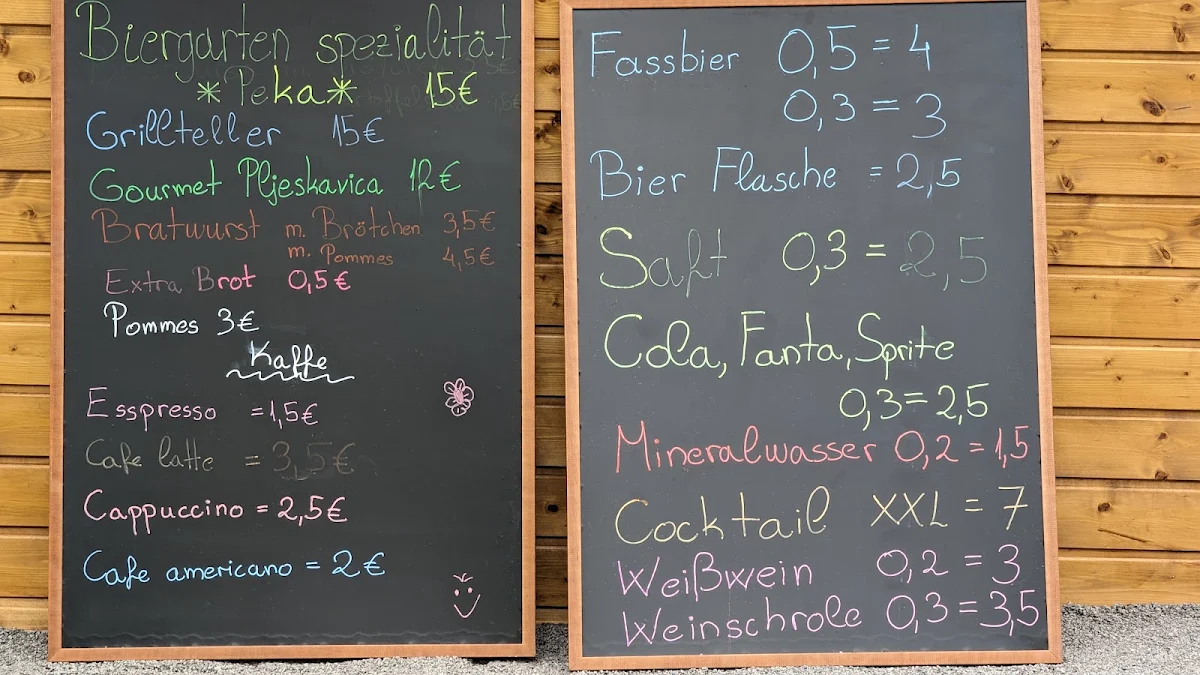 Biergarten spezialität
*Peka* 15€
Grillteller 15€
Gourmet Pljeskavica 12€
Bratwurst m. Brötchen 3,5€
m. Pommes 4,5€
Extra Brot 0,5€
Pommes 3€
Kaffe
Esspresso =1,5€
Cafe latte = 3,5€
Cappuccino = 2,5€
Cafe americano = 2€
Fassbier 0,5 = 4
0,3 = 3
Bier Flasche = 2,5
Saft 0,3 = 2,5
Cola, Fanta, Sprite
0,3 = 2,5
Mineralwasser 0,2 = 1,5
Cocktail XXL = 7
Weißwein 0,2 = 3
Weinschrole 0,3 = 3,5